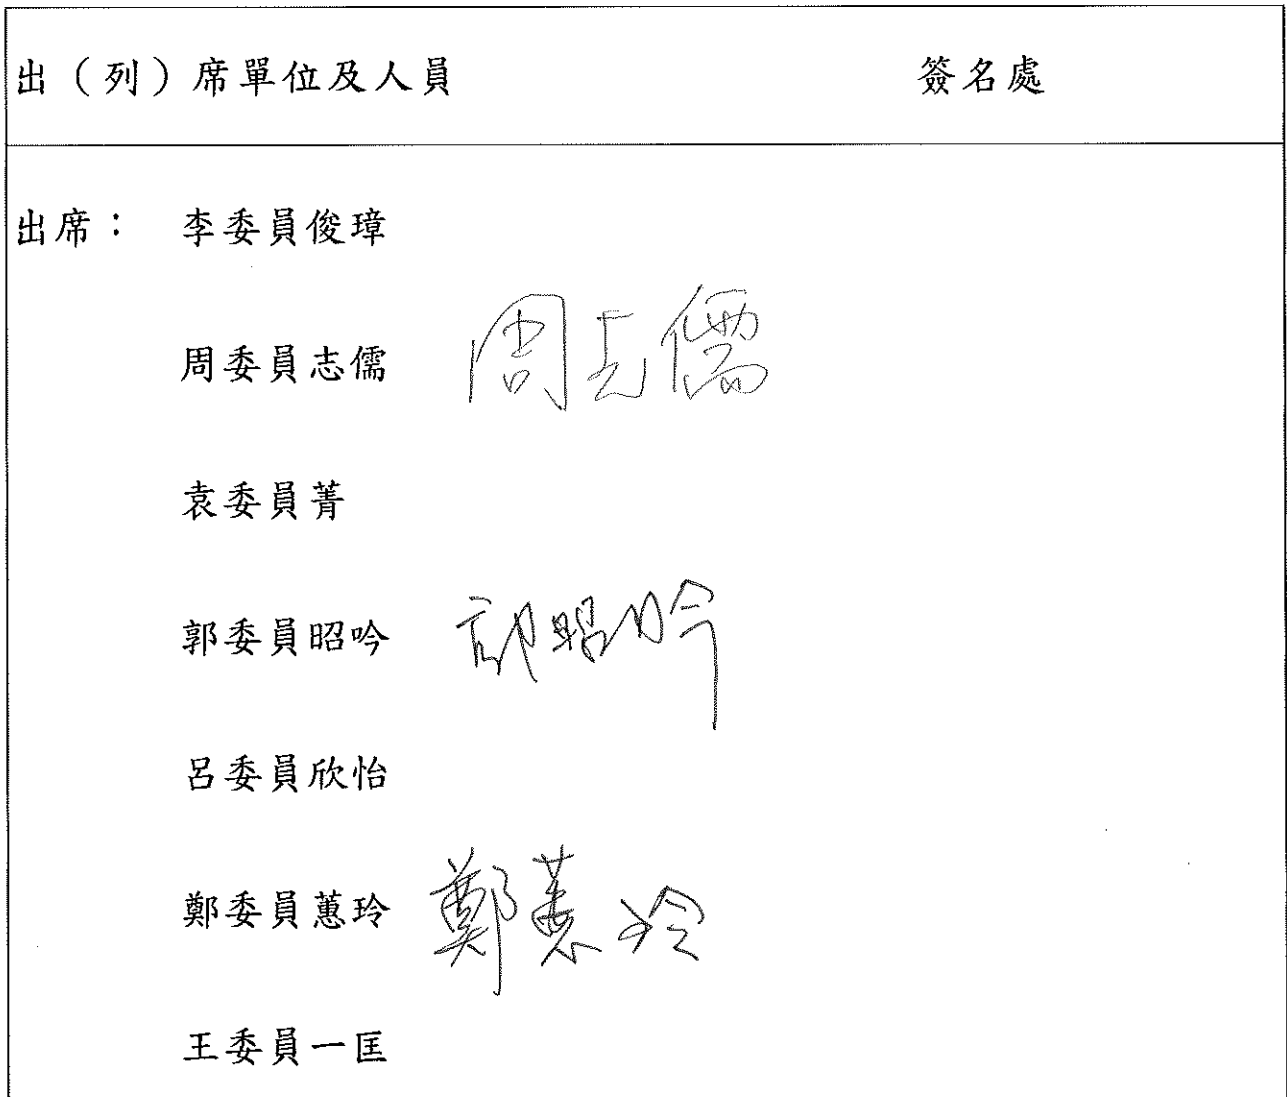 出（列）席單位及人員 簽名處
出席： 李委員俊璋
周委員志儒 周志儒
袁委員菁
郭委員昭吟 郭昭吟
呂委員欣怡
鄭委員蕙玲 鄭蕙玲
王委員一匡